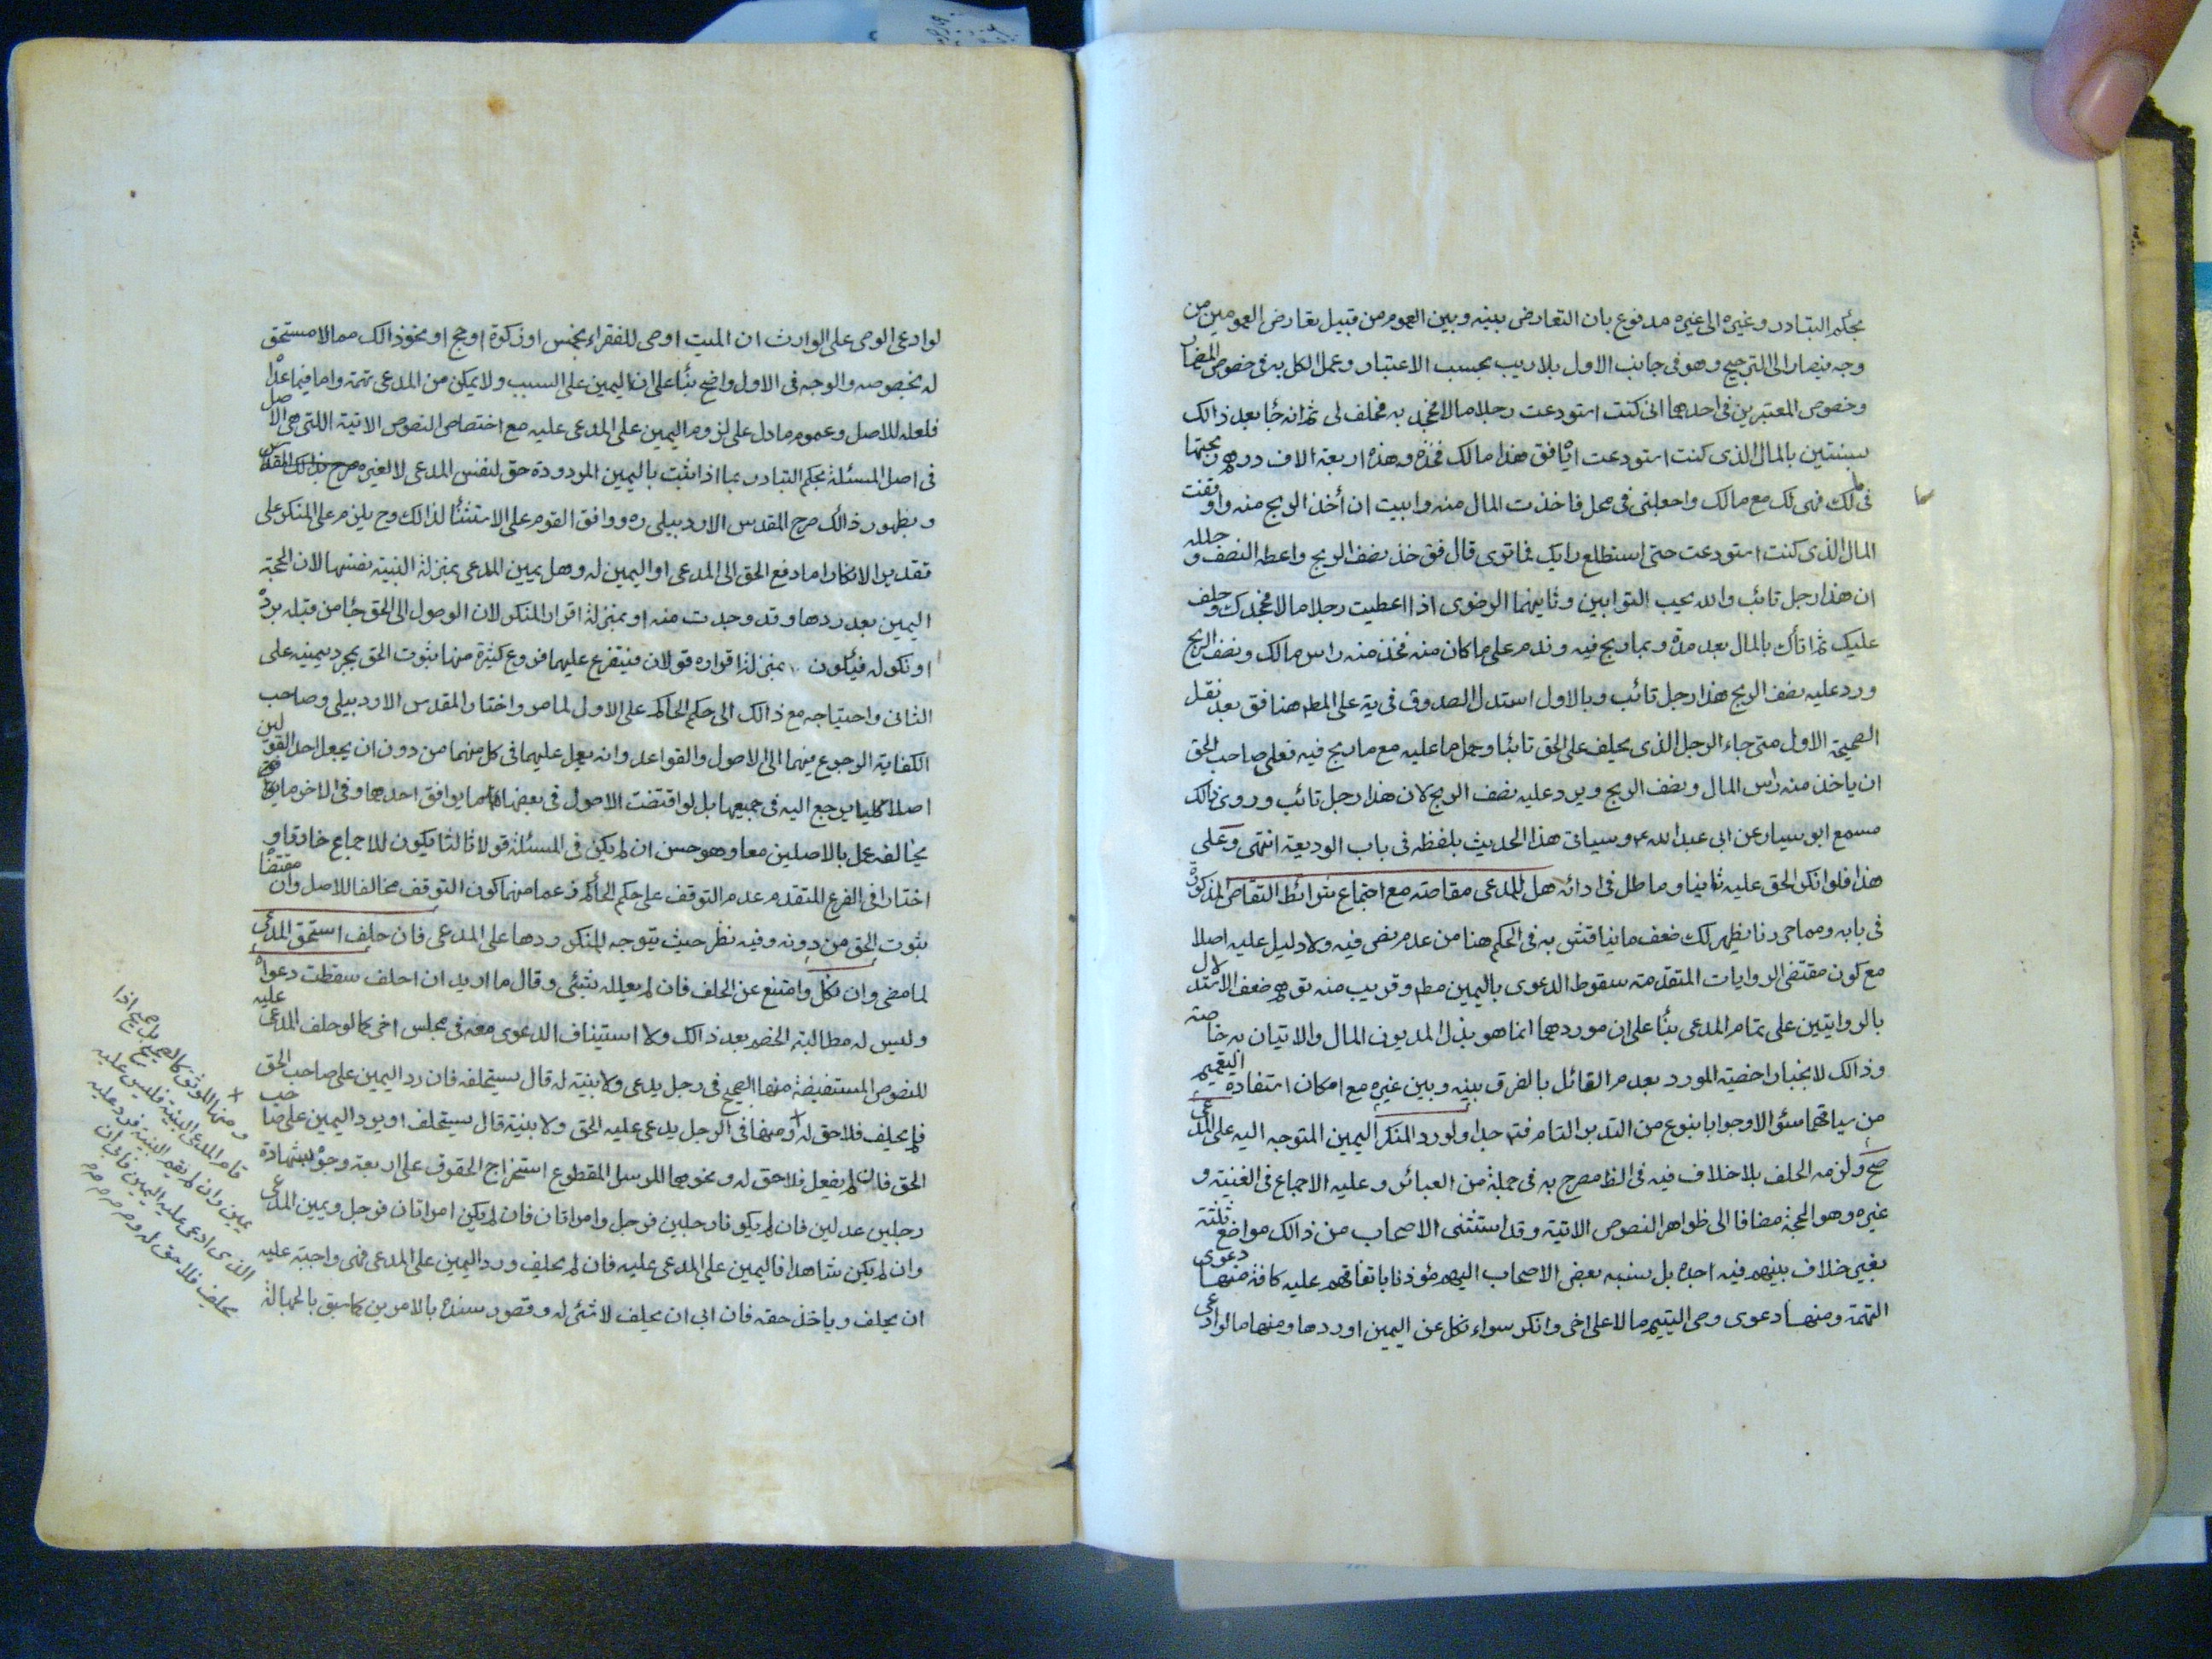 بحكم التبادر وغيره الى غيره مدفوع بان التعارض بينه وبين العموم من قبيل تعارض العمومين من
وجه فيصار الى الترجيح وهو فى جانب الاول بلا ريب بحسب الاعتبار وعمل الكل به فى خصوص المضمار
وخصوص المعتبرين فى احدهما انى كنت استودعت رجلا مالا فجحد به فحلف لى ثم انه جأ بعد ذالك
بسنتين بالمال الذى كنت استودعت اياه فق هذا مالك فخذه وهذه اربعة الاف درهم ربحتها
فى مالك فهى لك مع مالك واجعلنى فى حل فاخذت المال منه وابيت ان أخذ الربح منه واوقفت
المال الذى كنت استودعت حتى استطلع رايك فما ترى قال فق خذ نصف الربح واعطه النصف و حلله
ان هذا رجل تائب والله يحب التوابين وثانيهما الرضوى اذا اعطيت رجلا مالا فجحدك وحلف
عليك ثم اتاك بالمال بعد مدة وبما ربح فيه وندم على ما كان منه فخذ منه راس مالك ونصف الربح
ورد عليه نصف الربح هذا رجل تائب وبالاول استدل الصدوق فى يه على المط هنا فق بعد نقل
الصحيحة الاول متى جاء الرجل الذى يحلف على الحق تائبا وحمل ما عليه مع ما ربح فيه فعلى صاحب الحق
ان ياخذ منه راس المال ونصف الربح ويرد عليه نصف الربح لان هذا رجل تائب وروى ذالك
مسمع ابو سيار عن ابى عبد الله ع وسياتى هذا الحديث بلفظه فى باب الوديعة انتهى وعلى
هذا فلو انكر الحق عليه ثانيا وماطل فى ادائه هل للمدعى مقاصته مع اجتماع شرائط التقاص المذكورة
فى بابه ومما حررنا يظهر لك ضعف ما يناقش به فى الحكم هنا من عدم نص فيه ولا دليل عليه اصلا
مع كون مقتضى الروايات المتقدمة سقوط الدعوى باليمين مط وقريب منه توهم ضعف الاستدلال
بالروايتين على تمام المدعى بنأ على ان موردهما انما هو بذل المديون المال والاتيان به خاصة
وذالك لانجبار اخصية المورد بعدم القائل بالفرق بينه وبين غيره مع امكان استفادة التعميم
من سياقهما سئوالا وجوابا بنوع من التدبر التام فتد جدا ولو رد المنكر اليمين المتوجه اليه على المدعى
صح ولزمه الحلف بلا خلاف فيه فى الظ مصرح به فى جملة من العبائر وعليه الاجماع فى الغنية و
غيره وهو الحجة مضافا الى ظواهر النصوص الاتية وقد استثنى الاصحاب من ذالك مواضع ثلثة
بغير خلاف بينهم فيه اجده بل نسبه بعض الاصحاب اليهم مؤذنا باتفاقهم عليه كافة منها دعوى
التهمة ومنها دعوى وصى اليتيم مالا على اخر وانكر سواء نكل عن اليمين او ردها ومنها ما لو ادعى
لو ادعى الوصى على الوارث ان الميت اوصى للفقراء بخمس او زكوة او حج او نحو ذالك مما لا مستحق
له بخصوصه والوجه فى الاول واضح بنأ على ان اليمين على السبب ولا يمكن من المدعى تهمة واما فيما عداه
فلعله للاصل وعموم ما دل على لزوم اليمين على المدعى عليه مع اختصاص النصوص الاتية اللتى هى الاصل
فى اصل المسئلة بحكم التبادر بما اذا ثبت باليمين المردودة حق لنفس المدعى لا لغيره صرح بذالك المقدس
وبظهور ذالك صرح المقدس الاردبيلى ره ووافق القوم على الاستثنأ لذالك وح يلزم على المنكر على
تقدير الانكار اما دفع الحق الى المدعى او اليمين له وهل يمين المدعى بمنزلة البينة نفسها لان الحجة
اليمين بعد ردها وقد وجدت منه او بمنزلة اقرار المنكر لان الوصول الى الحق جأ من قبله برده
او نكوله فيكون بمنزلة اقراره قولان فيتفرع عليهما فروع كثيرة منها ثبوت الحق بمجرد يمينه على
الثانى واحتياجه مع ذالك الى حكم الحاكم على الاول لما مر واختار المقدس الاردبيلى وصاحب
الكفاية الرجوع فيهما الى الاصول والقواعد وانه يعمل عليهما فى كل منهما من دون ان يجعل احد القولين
اصلا كليا يرجع اليه فى جميعها بل لو اقتضت الاصول فى بعضها ما يوافق احدهما وفى الاخر ما يوافق
يخالفه عمل بالاصلين معا وهو حسن ان لم يكن فى المسئلة قولا ثالثا يكون للاجماع خارقا و
اختارا فى الفرع المتقدم عدم التوقف على حكم الحاكم زعما منهما كون التوقف مخالفا للاصل وان مقتضاه
ثبوت الحق من دونه وفيه نظر حيث يتوجه للمنكر ردها على المدعى فان حلف استحق المدعى
لما مضى وان نكل وامتنع عن الحلف فان لم يعلله بشئى وقال ما اريد ان احلف سقطت دعواه
وليس له مطالبة الخصم بعد ذالك ولا استيناف الدعوى معه فى مجلس اخر كما لو حلف المدعى عليه
للنصوص المستفيضة منها الصحيح فى رجل يدعى ولا بينة له قال يستحلفه فان رد اليمين على صاحب الحق
فلم يحلف فلا حق له ومنها فى الرجل يدعى عليه الحق ولا بينة قال يستحلف او يرد اليمين على صاحب
الحق فان لم يفعل فلا حق له ونحوهما المرسل المقطوع استخراج الحقوق على اربعة وجوه بشهادة
رجلين عدلين فان لم يكونا رجلين فرجل وامراتان فان لم يكن امراتان فرجل ويمين المدعى
وان لم يكن شاهدا فاليمين على المدعى عليه فان لم يحلف ورد اليمين على المدعى فهى واجبة عليه
ان يحلف وياخذ حقه فان ابى ان يحلف لا شئى له وقصور سنده بالامرين كما سبق بالجهالة
ومنها الموثق كالصحيح بل صحيح اذا
قام المدعى البينة فليس عليه
يمين وان لم يقم البينة فرد عليه
الذى ادعى عليه اليمين فابى ان
يحلف فلا حق له